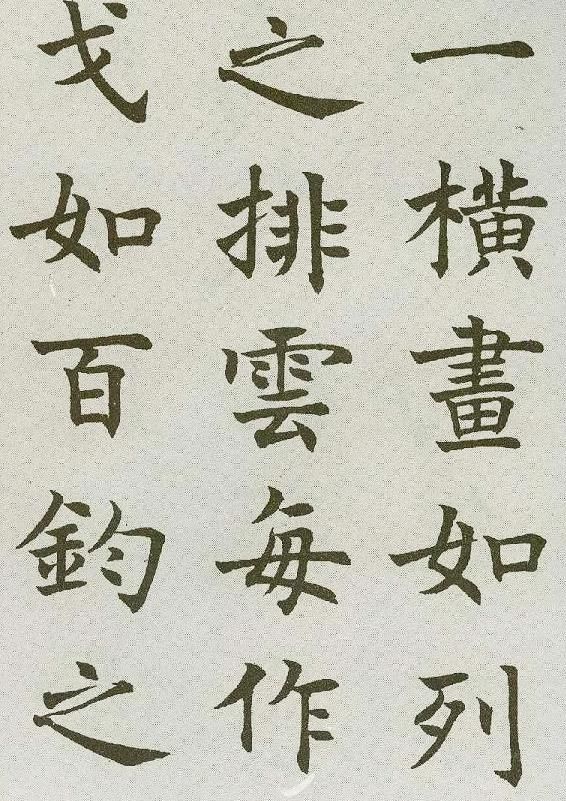 一橫畫如列
之排雲每作
戈如百鈞之